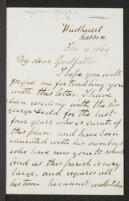 Wadhurst
Sussex
Feb 11 1869
My dear Godfather
I hope you will
forgive me for troubling you
with this letter. I have
been residing with the Re
George Ladd for the last
four years, who is curate of
this place and have been
educated with his own boys
who have now gone to school
and as this parish is very
large, and requires all
his time he cannot undertake